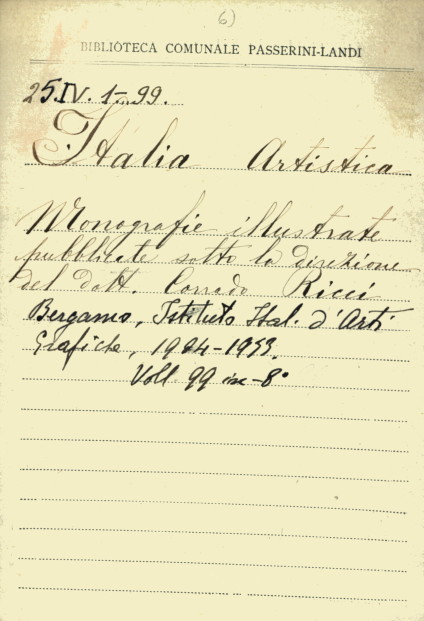 6)
BIBLIOTECA COMUNALE PASSERINI-LANDI
25.IV.1-99.
Italia Artistica
Monografie illustrate
pubblicate sotto la direzione
del dott. Corrado Ricci
Bergamo, Istituto Ital. d'Arti
Grafiche, 1904-1933.
Voll. 99 in-8°